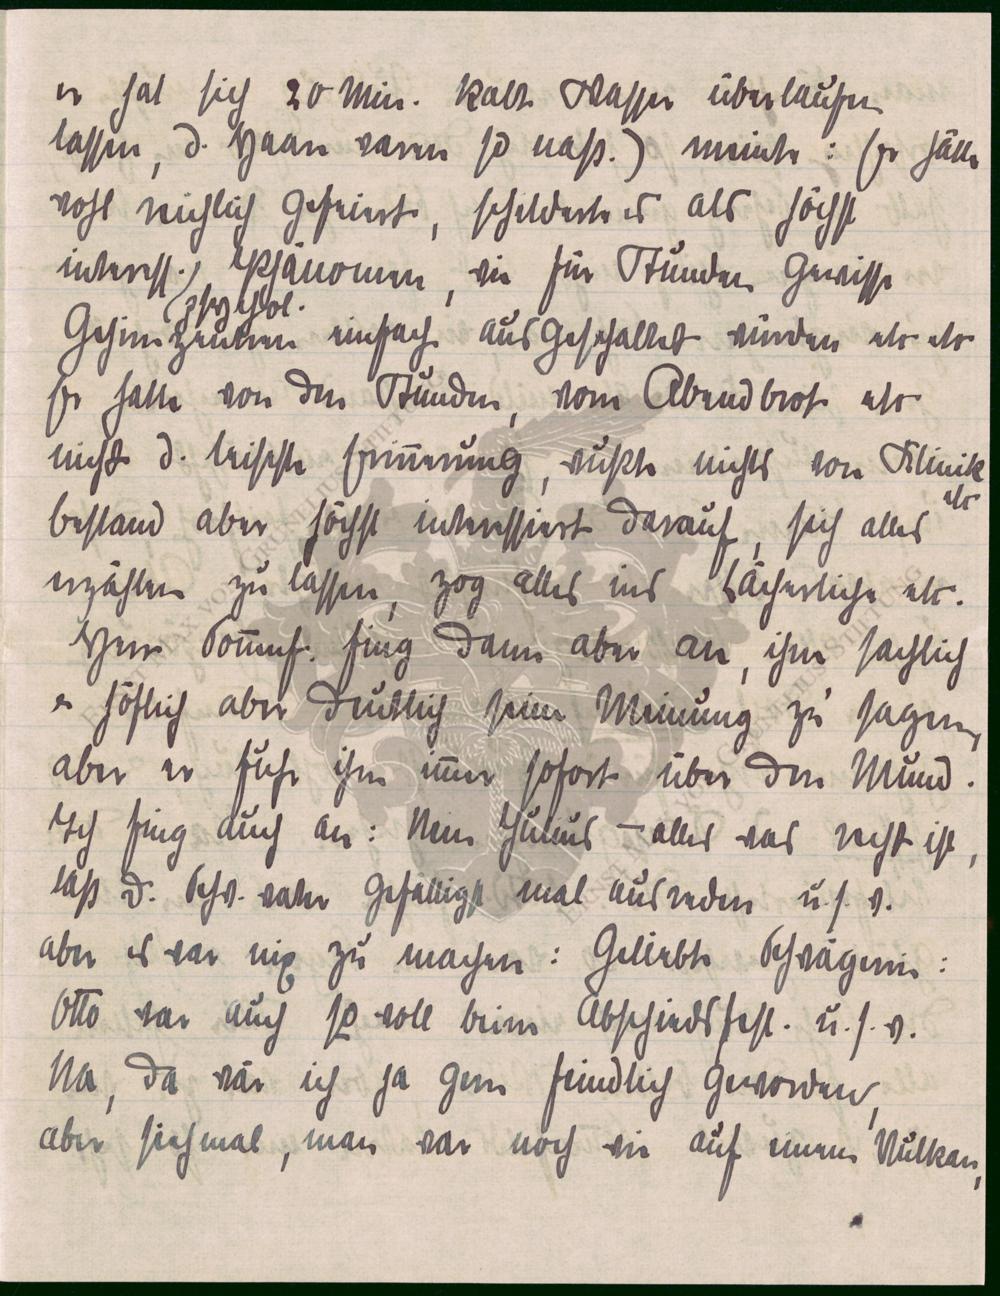 er hat sich 20 Min. kalt Wasser überlaufen
lassen, d. Haare waren so naß.) meinte: Er hätte
wohl reichlich gefeiert, schilderte es als höchst
interess. Phänomen, wie für Stunden gewisse
(psychol.
Gehirnzentren einfach ausgeschaltet würden etc etc
Er hatte von den Stunden, vom Abendbrot etc
nicht d. leiseste Erinnerung, wußte nichts von Klinik
etc
bestand aber höchst interessiert darauf, sich alles
erzählen zu lassen, zog alles ins Lächerliche etc.
Herr Bonhf. fing dann aber an, ihm sachlich
u höflich aber deutlich seine Meinung zu sagen,
aber er fuhr ihm im̅er sofort über den Mund.
Ich fing auch an: Nein Julius – alles was recht ist,
laß d. Schw. vater gefälligst mal ausreden u. s. w.
aber es war nix zu machen: Geliebte Schwägerin:
Otto war auch so voll beim Abschiedsfest. u. s. w.
Na, da wär ich ja gern feindlich geworden,
aber sieh mal, man war noch wie auf einem Vulkan,
ERNST MAX VON GRUNELIUS-STIFTUNG